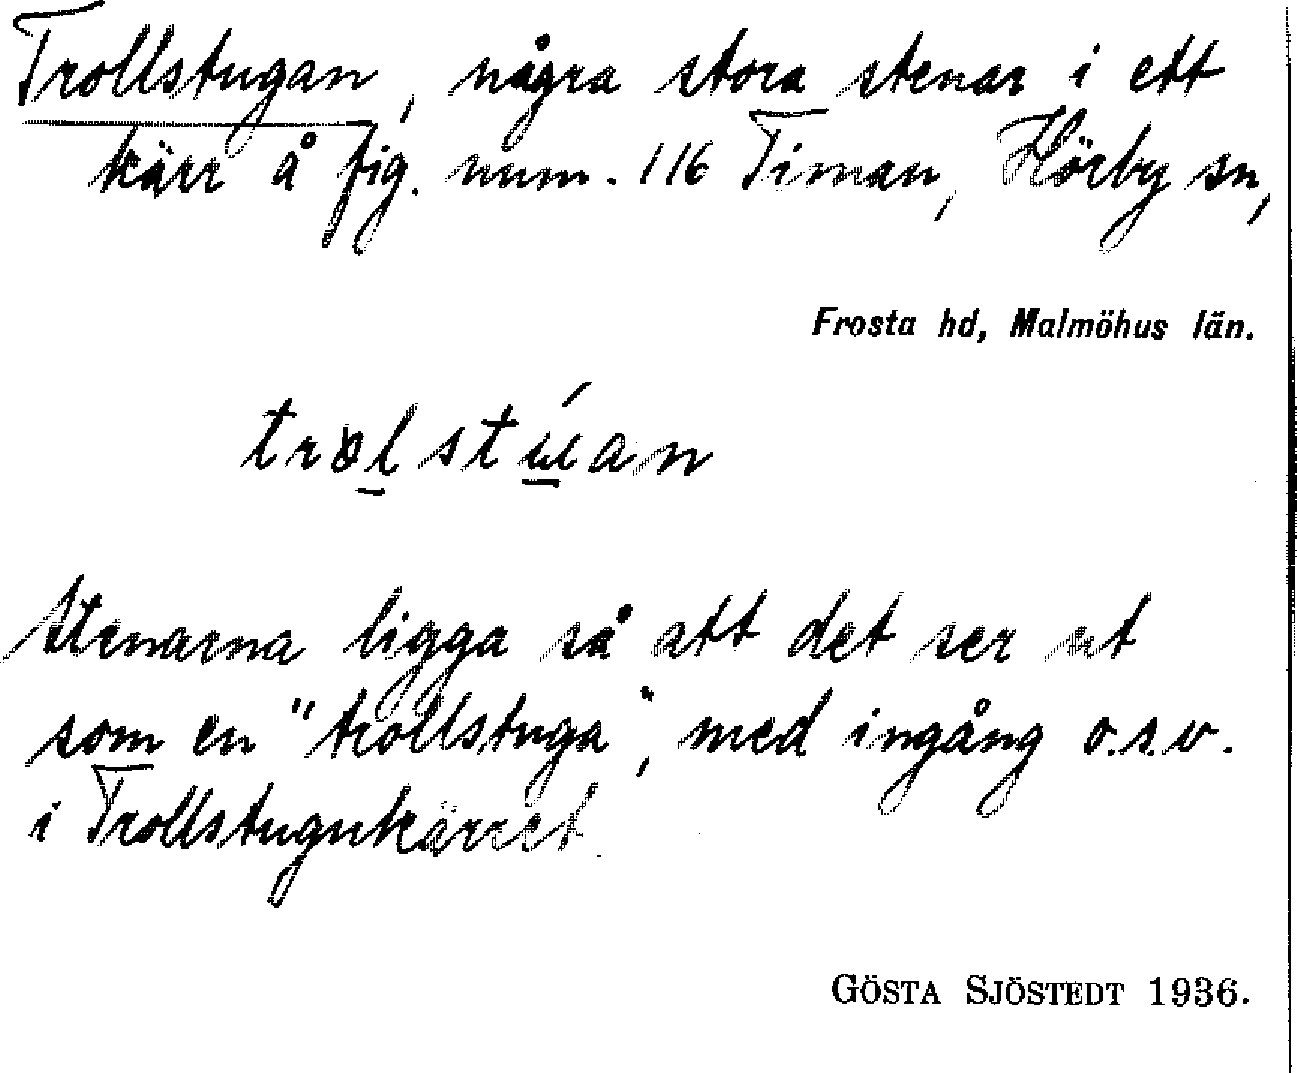 Trollstugan, några stora stenar i ett
kärr å fig. num. 116 Timan, Hörby sn,
Frosta hd, Malmöhus län.
Stenarna ligga så att det ser ut
som en "trollstuga", med ingång o.s.v.
i Trollstugukärret.
GÖSTA SJÖSTEDT 1936.